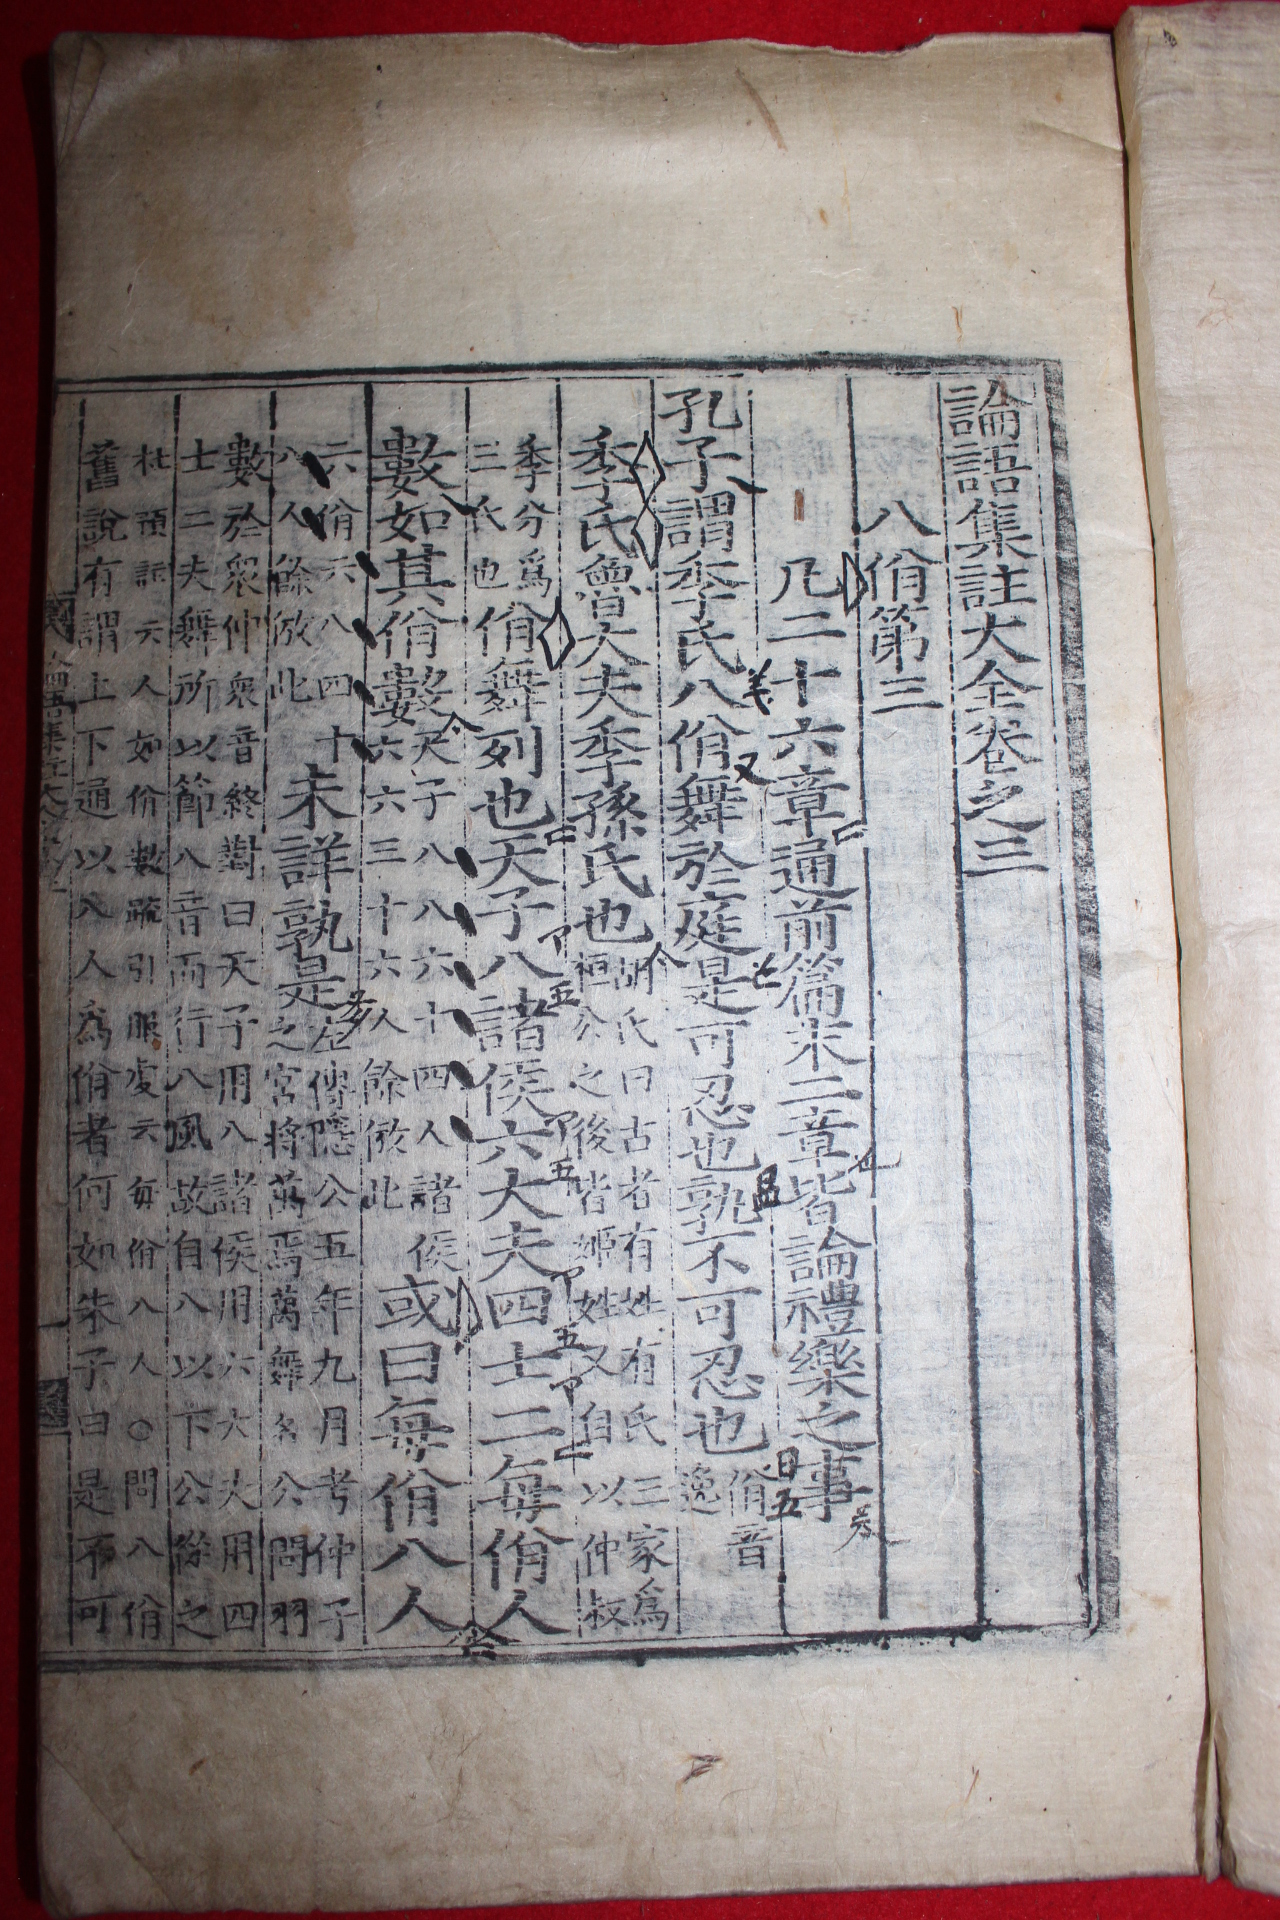 論語集註大全卷之三
八佾第三
凡二十六章通前篇末二章皆論禮樂之事
孔子謂季氏八佾舞於庭是可忍也孰不可忍也佾音
逸
季氏魯大夫季孫氏也胡氏曰古者有姓有氏三家爲
桓公之後皆姬姓又自以仲叔
季分爲
三氏也佾舞列也天子八諸侯六大夫四士二每佾人
數如其佾數天子八八六十四人諸侯
六六三十六人餘倣此或曰每佾八人
六佾六八四十
八人餘倣此未詳孰是左傳隱公五年九月考仲子
之宮將萬焉萬舞名公問羽
數於衆仲衆音終對曰天子用八諸侯用六大夫用四
士二夫舞所以節八音而行八風故自八以下公從之
杜預註云人如佾數疏引服虔云每佾八人○問八佾
舊說有謂上下通以八人爲佾者何如朱子曰是不可